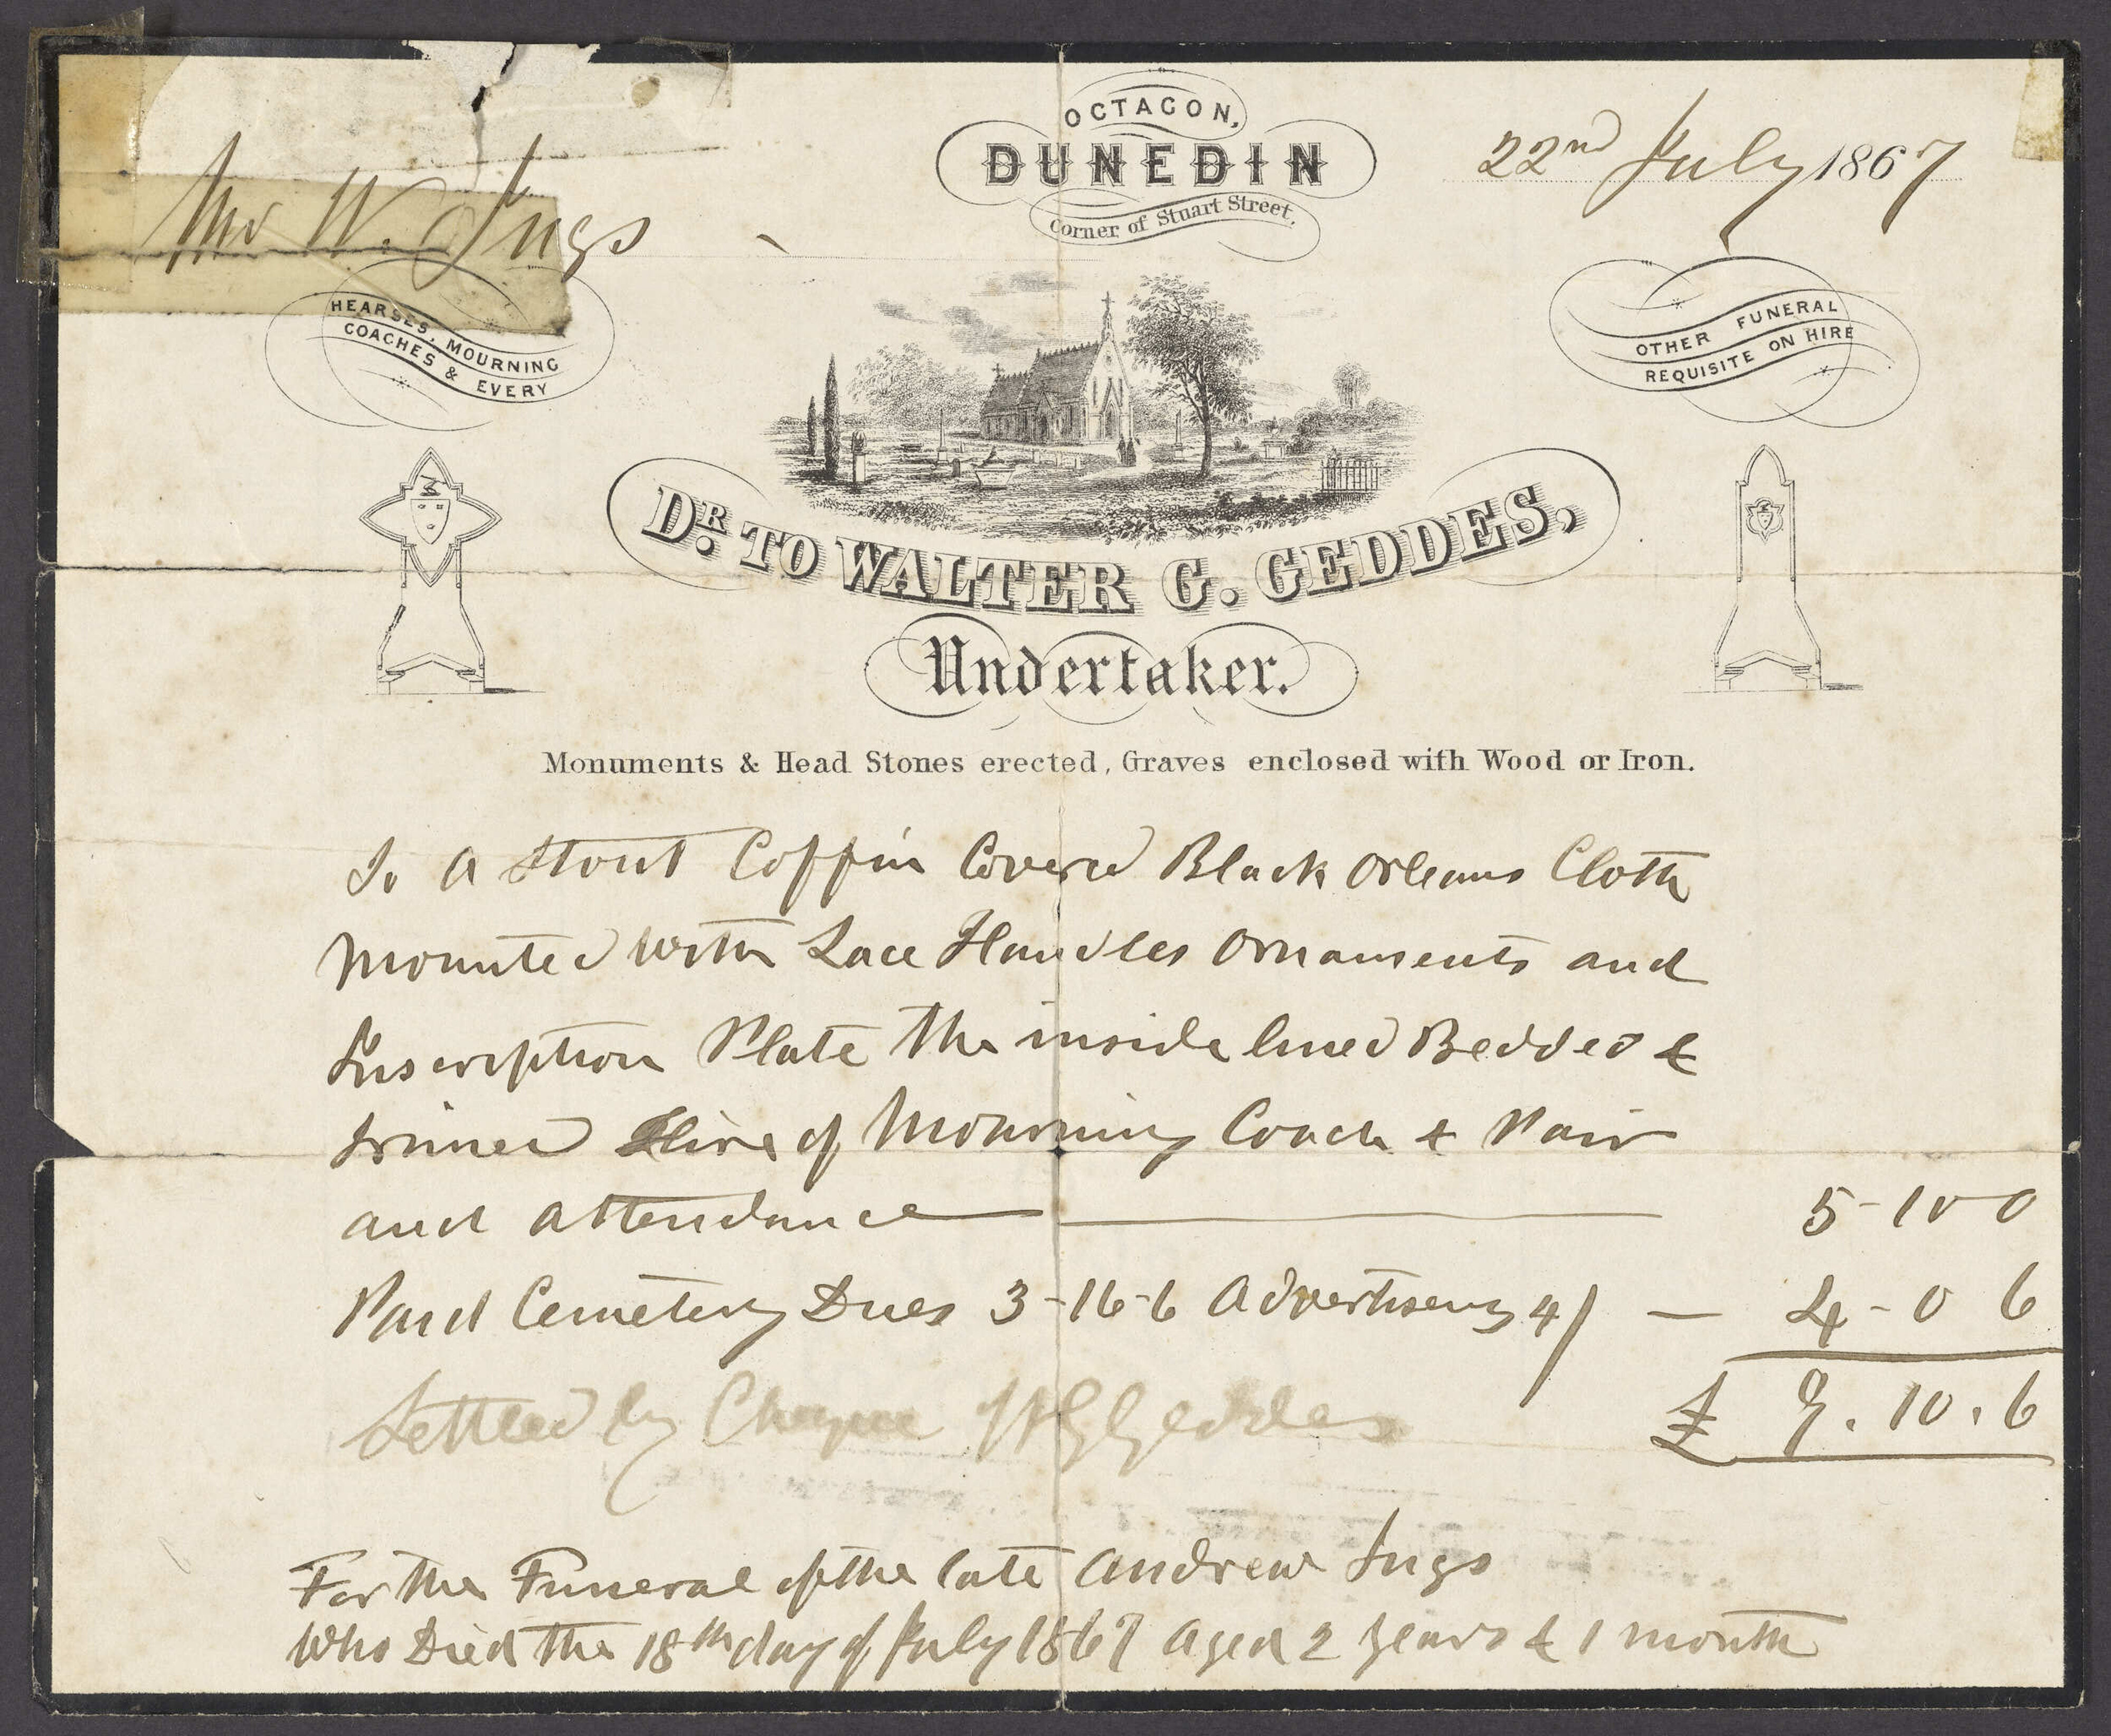 OCTAGON,
DUNEDIN
Corner of Stuart Street.
22nd July 1867
Mr W. Ings
HEARSES, MOURNING
COACHES & EVERY
OTHER FUNERAL
REQUISITE ON HIRE
DR. TO WALTER G. GEDDES,
Undertaker.
Monuments & Head Stones erected, Graves enclosed with Wood or Iron.
To a Stout Coffin Covered Black Orleans Cloth
Mounted with Lace Handles Ornaments and
Inscription Plate the inside lined Bedded &
Hire of Mourning Coach & Pair
and attendance 5-10-0
Paid Cemetery Dues 3-16-6 Advertising 4/ — 4-0 6
£ 9.10.6
Settled by Cheque WGGeddes
For the Funeral of the late Andrew Ings
Who Died the 18th day of July 1867 aged 2 years & 1 month